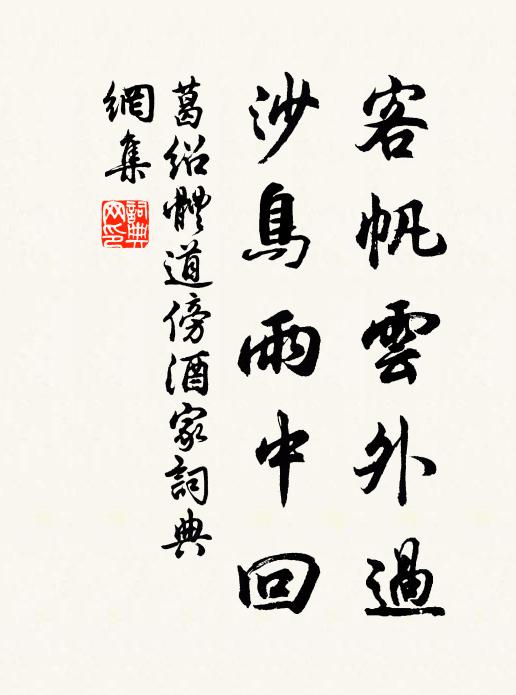 客帆雲外過
沙鳥雨中回
葛紹體道傍酒家詞典
網集
詞典網印